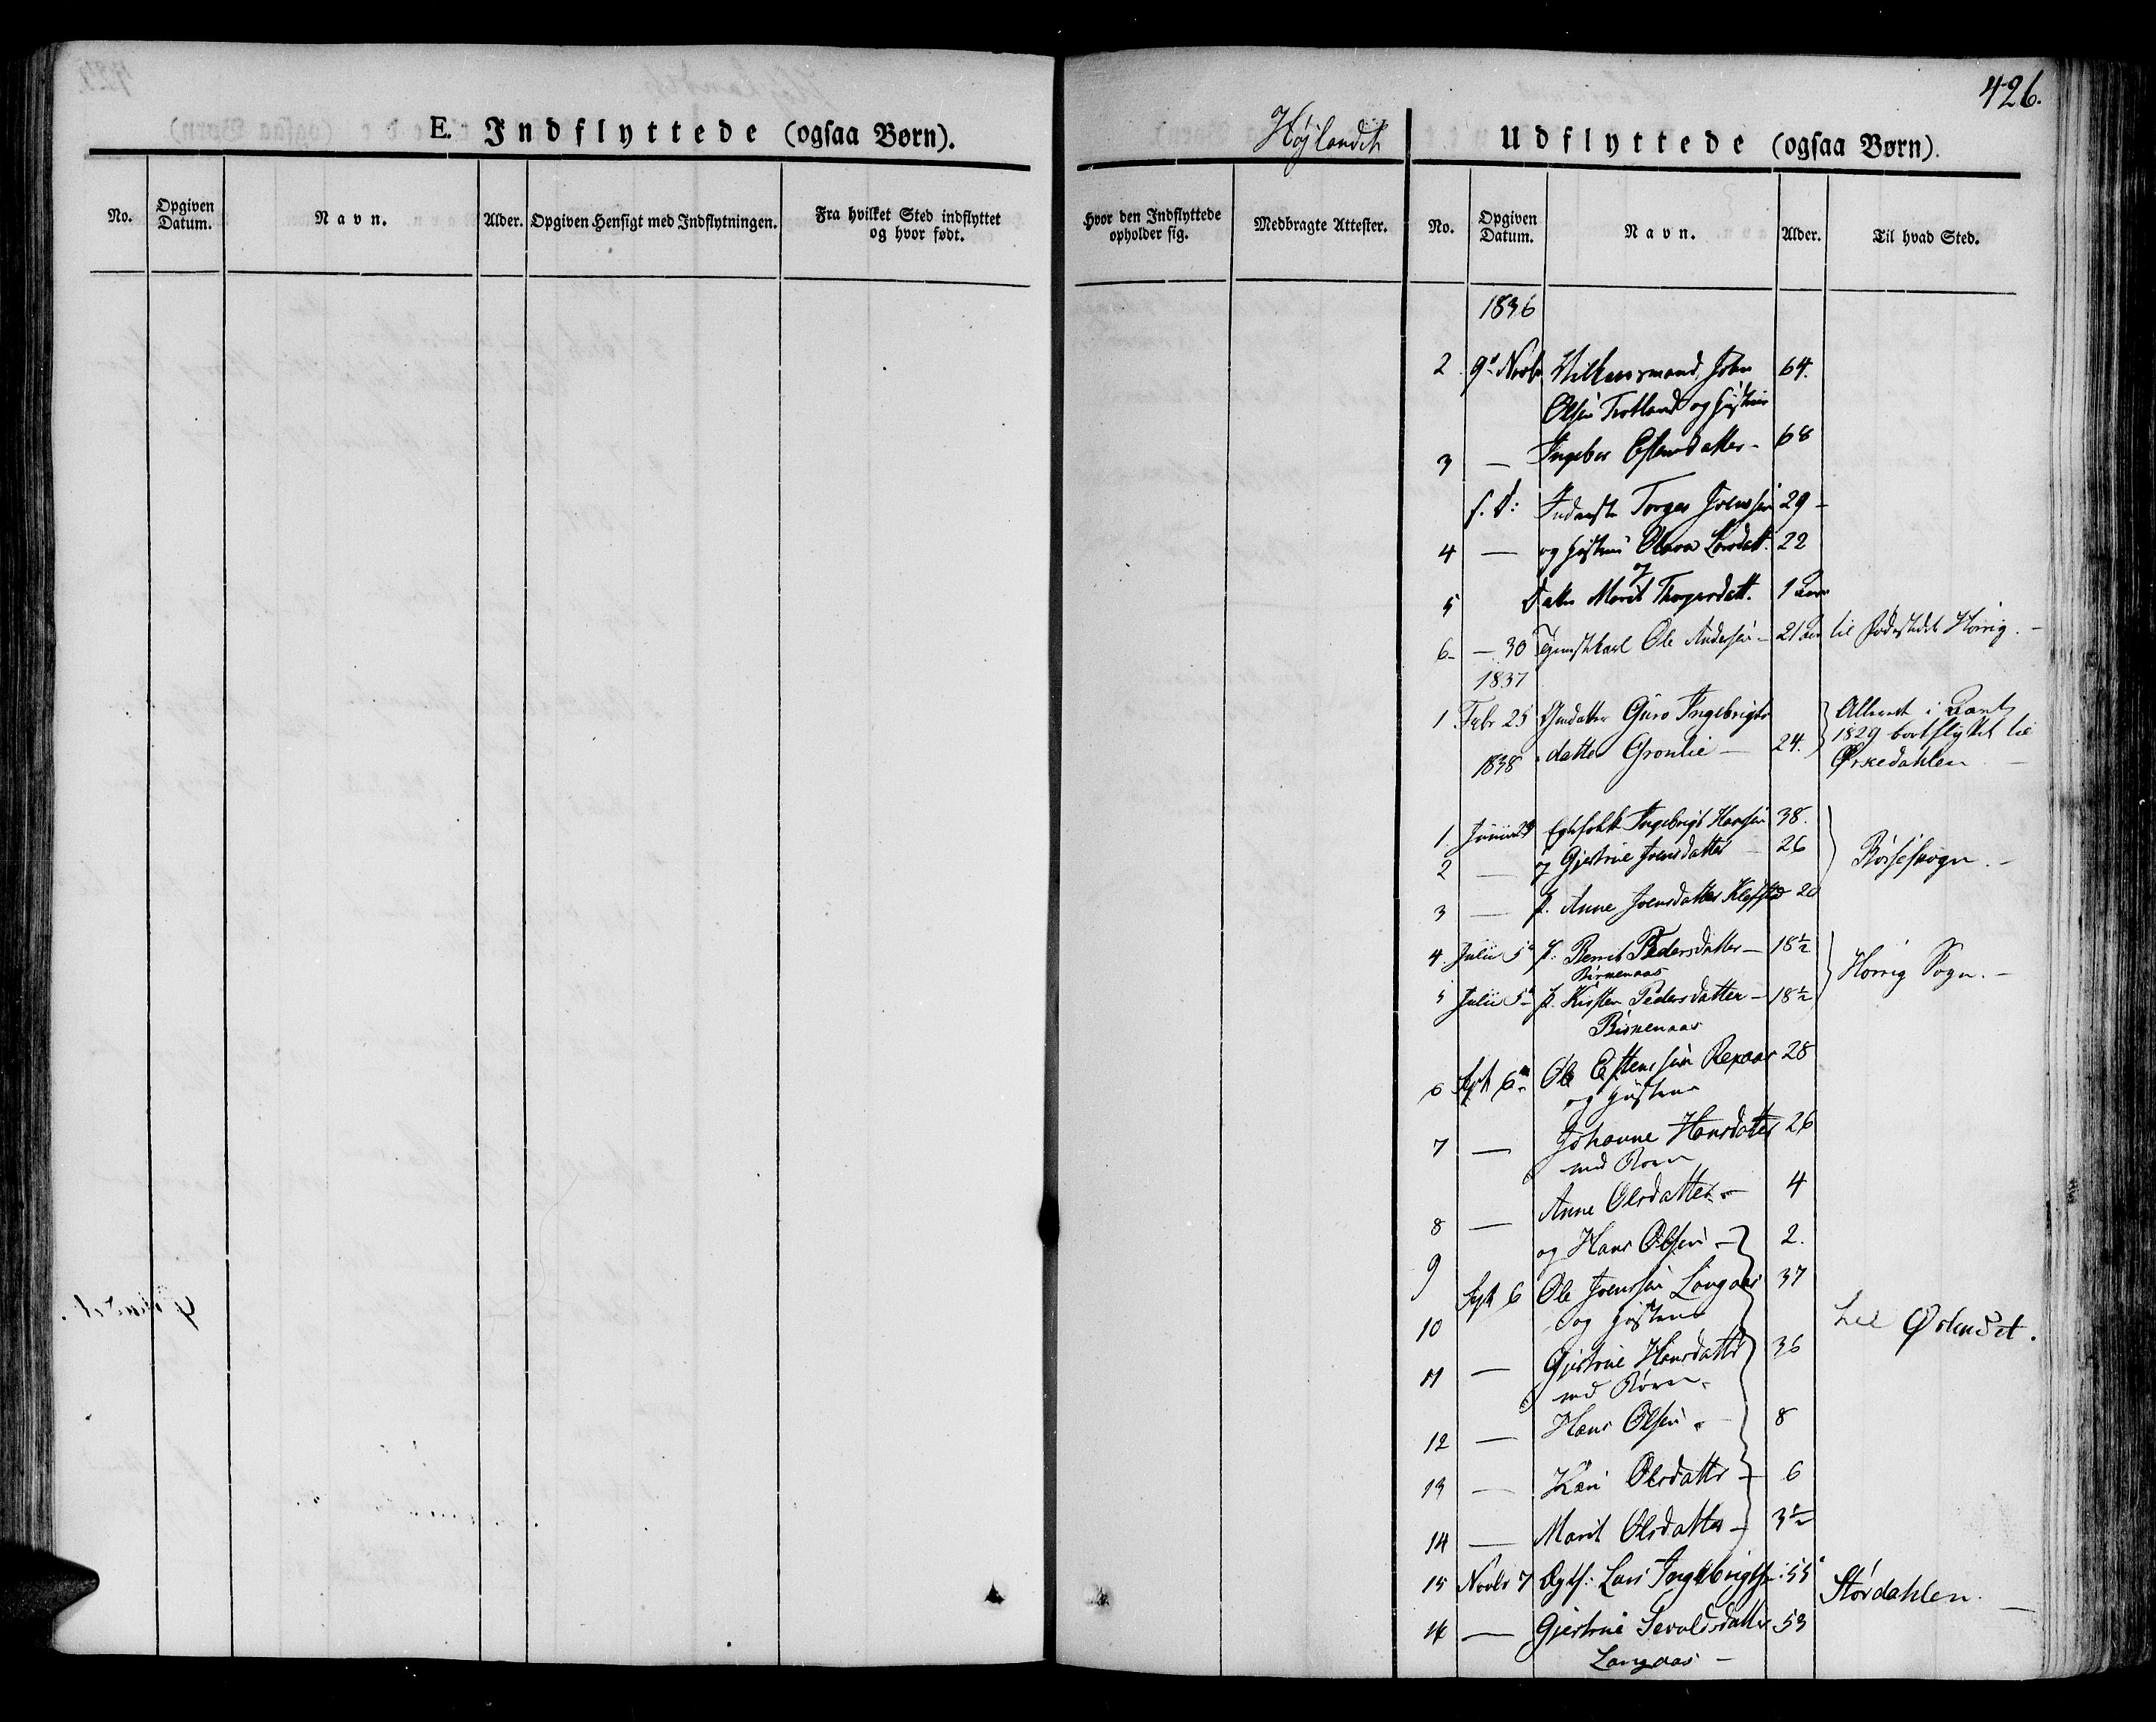 E. Indflyttede (ogsaa Børn).
No.
Opgiven Datum.
Navn.
Alder.
Opgiven Hensigt med Indflytningen.
Fra hvilket Sted indflyttet og hvor født.
426.
Højlandet
Udflyttede (ogsaa Børn).
Hvor den Indflyttede opholder sig.
Medbragte Attester.
No.
Opgiven Datum.
Navn.
Alder.
Til hvad Sted.
1836
2 9de Novbr John 64.
Olsen og Hustrue
3 — Ingebor Estensdatter - 68
s. d: Inderste Torger Joensen 29 -
4 — og Hustrue Olava Larsdatt. 22
og
5 Datter Marit Thorgersdatt. 1 Aar
6 - — 30 Tjenestekarl Ole Andersen - 21 Aar til Fødestedet Horrig. -
1837
1. Febr 25 Guro Ingebrigts
datter Gronlie — 24. Allerede i Aaret
1829 bortflyttet til
Ørkedahlen —
1838
1. Junii Egtefolk Ingebrigt Hansen 38.
2 — og Gjertrue Joensdatter — 26 Børseskogn. -
3 — p. Anne Joensdatter 20
4. Julii 5te p. Berrit Pedersdatter — 18 1/2
Birkenaas
Horrig Sogn. -
5 Julii 5te p. Kirsten Pedersdatter — 18 1/2
Birkenaas
6 Sept 6te Ole Estensen 28
og Hustrue
7 — Johanne Hansdatter 26
med Børn
8 — Anne Olsdatter - 4
9 og Hans Olsen - 2.
10 Sept 6 Ole Joensen Langaas 37
og Hustrue
til Ørlandet.
11 — Gjertrue Hansdatter 36
med Børn -
12 — Hans Olsen - 8
13 — Kari Olsdatter - 6
14 — Marit Olsdatter - 3 1/2
15 Novbr 7 Egtf: Lars Ingebrigtsen 55
Størdahlen. —
16 — Gjertrue Sevaldsdatter 53
Langaas —